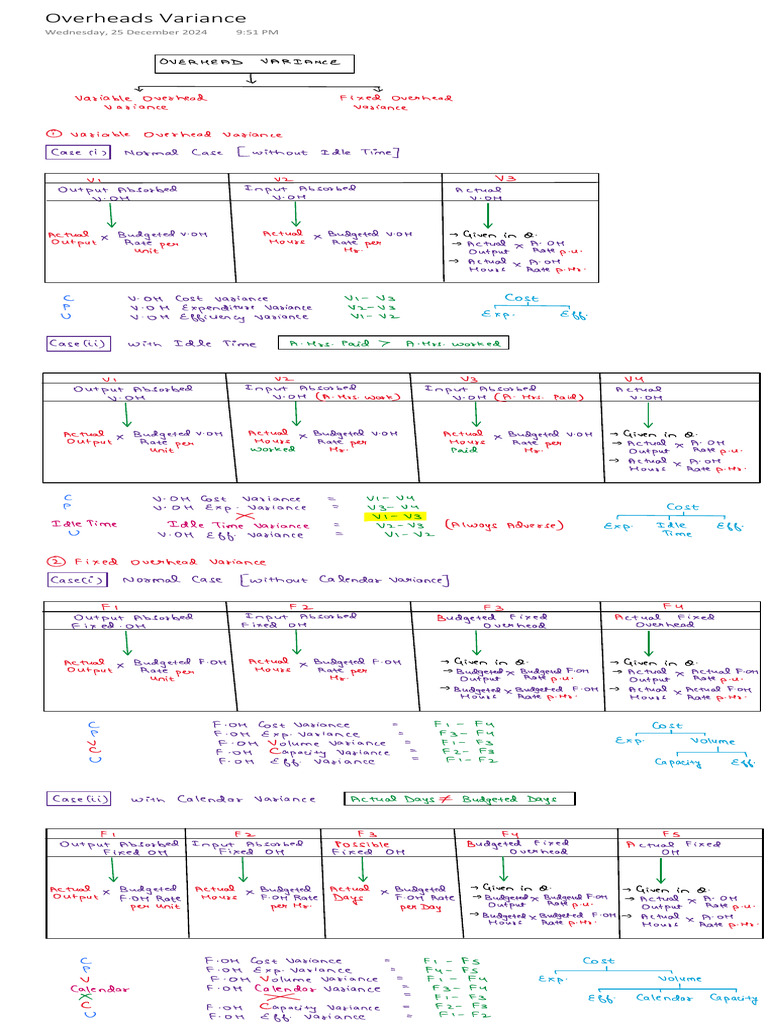 Overheads Variance
Wednesday, 25 December 2024 9:51 PM
OVERHEAD VARIANCE
Variable Overhead Variance
Fixed Overhead Variance
① Variable Overhead Variance
Case (i) Normal Case [without Idle Time]
V1 V2 V3
Output Absorbed V.OH
Input Absorbed V.OH
Actual V.OH
Actual Output × Budgeted V.OH Rate per unit
Actual Hours × Budgeted V.OH Rate per Hr.
→ Given in Q.
→ Actual Output × A.OH Rate p.u.
→ Actual Hours × A.OH Rate p.Hr.
C V.OH Cost Variance V1 - V3
P V.OH Expenditure Variance V2 - V3
U V.OH Efficiency Variance V1 - V2
Cost
Exp. Eff.
Case (ii) with Idle Time A.Hrs. Paid > A.Hrs. worked
V1 V2 V3 V4
Output Absorbed V.OH
Input Absorbed V.OH (A.Hrs. Work)
Input Absorbed V.OH (A.Hrs. Paid)
Actual V.OH
Actual Output × Budgeted V.OH Rate per unit
Actual Hours worked × Budgeted V.OH Rate per Hr.
Actual Hours Paid × Budgeted V.OH Rate per Hr.
→ Given in Q.
→ Actual Output × A.OH Rate p.u.
→ Actual Hours × A.OH Rate p.Hr.
C V.OH Cost Variance = V1 - V4
P V.OH Exp. Variance = V3 - V4
X V1 - V3
Idle Time Idle Time Variance = V2 - V3 (Always Adverse)
U V.OH Eff. Variance = V1 - V2
Cost
Exp. Idle Time Eff.
② Fixed Overhead Variance
Case (i) Normal Case [without Calendar Variance]
F1 F2 F3 F4
Output Absorbed Fixed OH
Input Absorbed Fixed OH
Budgeted Fixed Overhead
Actual Fixed Overhead
Actual Output × Budgeted F.OH Rate per unit
Actual Hours × Budgeted F.OH Rate per Hr.
→ Given in Q.
→ Budgeted Output × Budgeted F.OH Rate p.u.
→ Budgeted Hours × Budgeted F.OH Rate p.Hr.
→ Given in Q.
→ Actual Output × Actual F.OH Rate p.u.
→ Actual Hours × Actual F.OH Rate p.Hr.
C F.OH Cost Variance = F1 - F4
P F.OH Exp. Variance = F3 - F4
V F.OH Volume Variance = F1 - F3
C F.OH Capacity Variance = F2 - F3
U F.OH Eff. Variance = F1 - F2
Cost
Exp. Volume
Capacity Eff.
Case (ii) with Calendar Variance Actual Days ≠ Budgeted Days
F1 F2 F3 F4 F5
Output Absorbed Fixed OH
Input Absorbed Fixed OH
Possible Fixed OH
Budgeted Fixed Overhead
Actual Fixed OH
Actual Output × Budgeted F.OH Rate per unit
Actual Hours × Budgeted F.OH Rate per Hr.
Actual Days × Budgeted F.OH Rate per Day
→ Given in Q.
→ Budgeted Output × Budgeted F.OH Rate p.u.
→ Budgeted Hours × Budgeted F.OH Rate p.Hr.
→ Given in Q.
→ Actual Output × A.OH Rate p.u.
→ Actual Hours × A.OH Rate p.Hr.
C F.OH Cost Variance = F1 - F5
P F.OH Exp. Variance = F4 - F5
V F.OH Volume Variance = F1 - F4
Calendar F.OH Calendar Variance = F3 - F4
X X = F1 - F3
C F.OH Capacity Variance = F2 - F3
U F.OH Eff. Variance = F1 - F2
Cost
Exp. Volume
Eff. Calendar Capacity